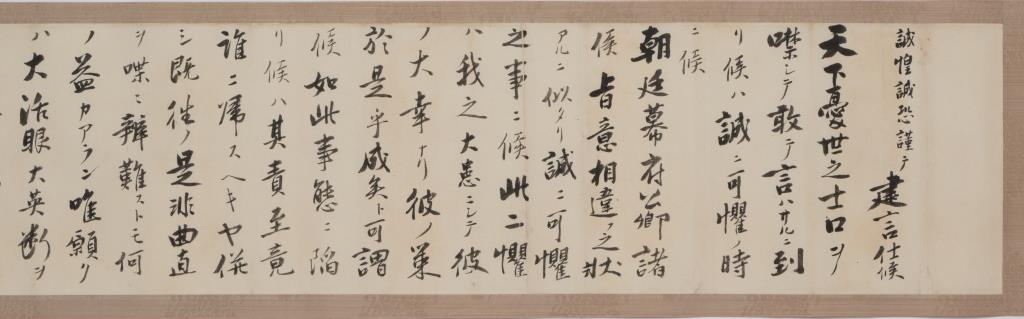 誠惶誠恐謹テ
建言仕候
天下憂世之士口ヲ
噤シテ敢テ言ハサルニ到
リ候ハ誠ニ可懼ノ時
ニ候
朝廷幕府公卿諸
侯旨意相違之状
アルニ似タリ誠ニ可懼
之事ニ候此二懼
ハ我之大患ニシテ彼
ノ大幸ナリ彼ノ策
於是乎成矣ト可謂
候如此事態ニ陥
リ候ハ其責至竟
誰ニ帰スヘキヤ併
シ既往ノ是非曲直
ヲ喋〻辨難ストモ何
ノ益カアラン唯願ク
ハ大活眼大英断ヲ